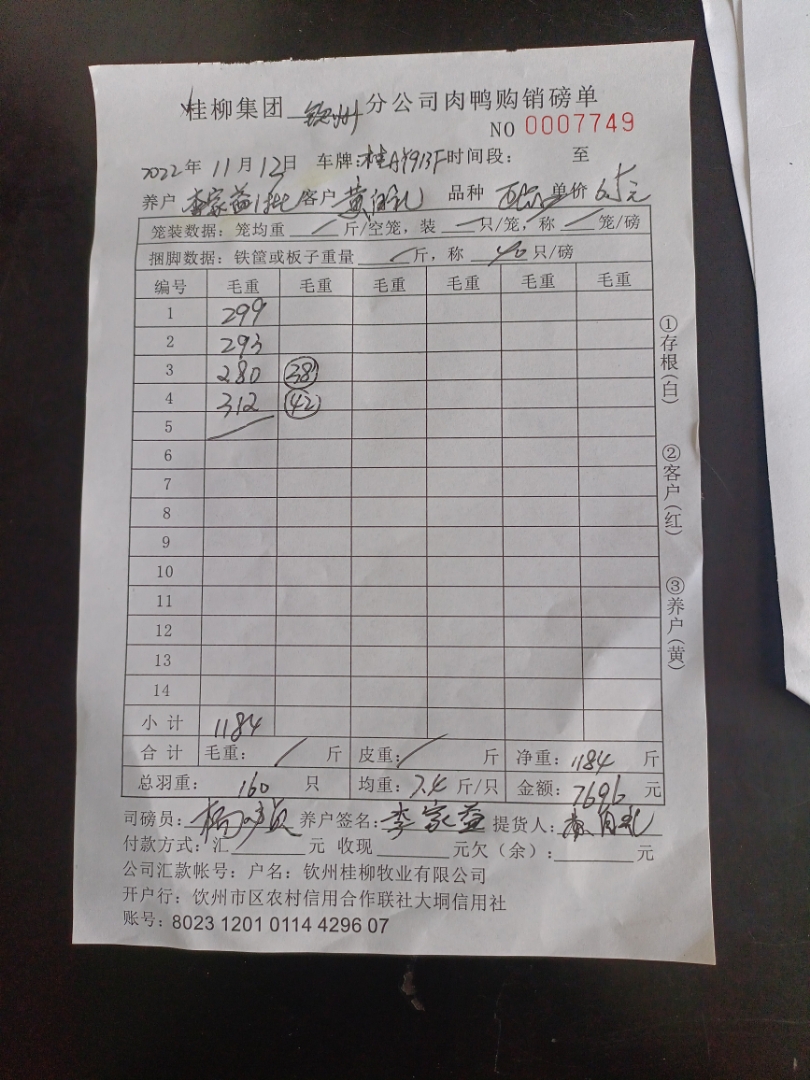 桂柳集团 钦州 分公司肉鸭购销磅单
NO 0007749
2022年 11月 12日 车牌: 时间段: 至
养户 李家益 客户 品种 单价 6.5元
笼装数据: 笼均重 / 斤/空笼, 装 一 只/笼, 称 / 笼/磅
捆脚数据: 铁筐或板子重量 / 斤, 称 40 只/磅
编号 毛重 毛重 毛重 毛重 毛重 毛重
1 299
2 293
3 280 38
4 312 42
5
6
7
8
9
10
11
12
13
14
小计 1184
合计 毛重: / 斤 皮重: / 斤 净重: 1184 斤
总羽重: 160 只 均重: 7.4 斤/只 金额: 7696 元
司磅员: 养户签名: 李家益 提货人:
付款方式: 汇 元 收现 元欠(余): 元
公司汇款帐号: 户名: 钦州桂柳牧业有限公司
开户行: 钦州市区农村信用合作联社大垌信用社
账号: 8023 1201 0114 4296 07
①存根(白)
②客户(红)
③养户(黄)